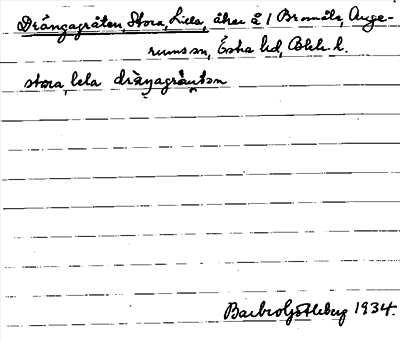 Drängagråten, Stora, Lilla, åker å 1 Bromåla, Auge-
rums sn, Östra hd, Blek. l.
stora, lela dräŋagråu̯tən
Barbro Götleberg 1934.